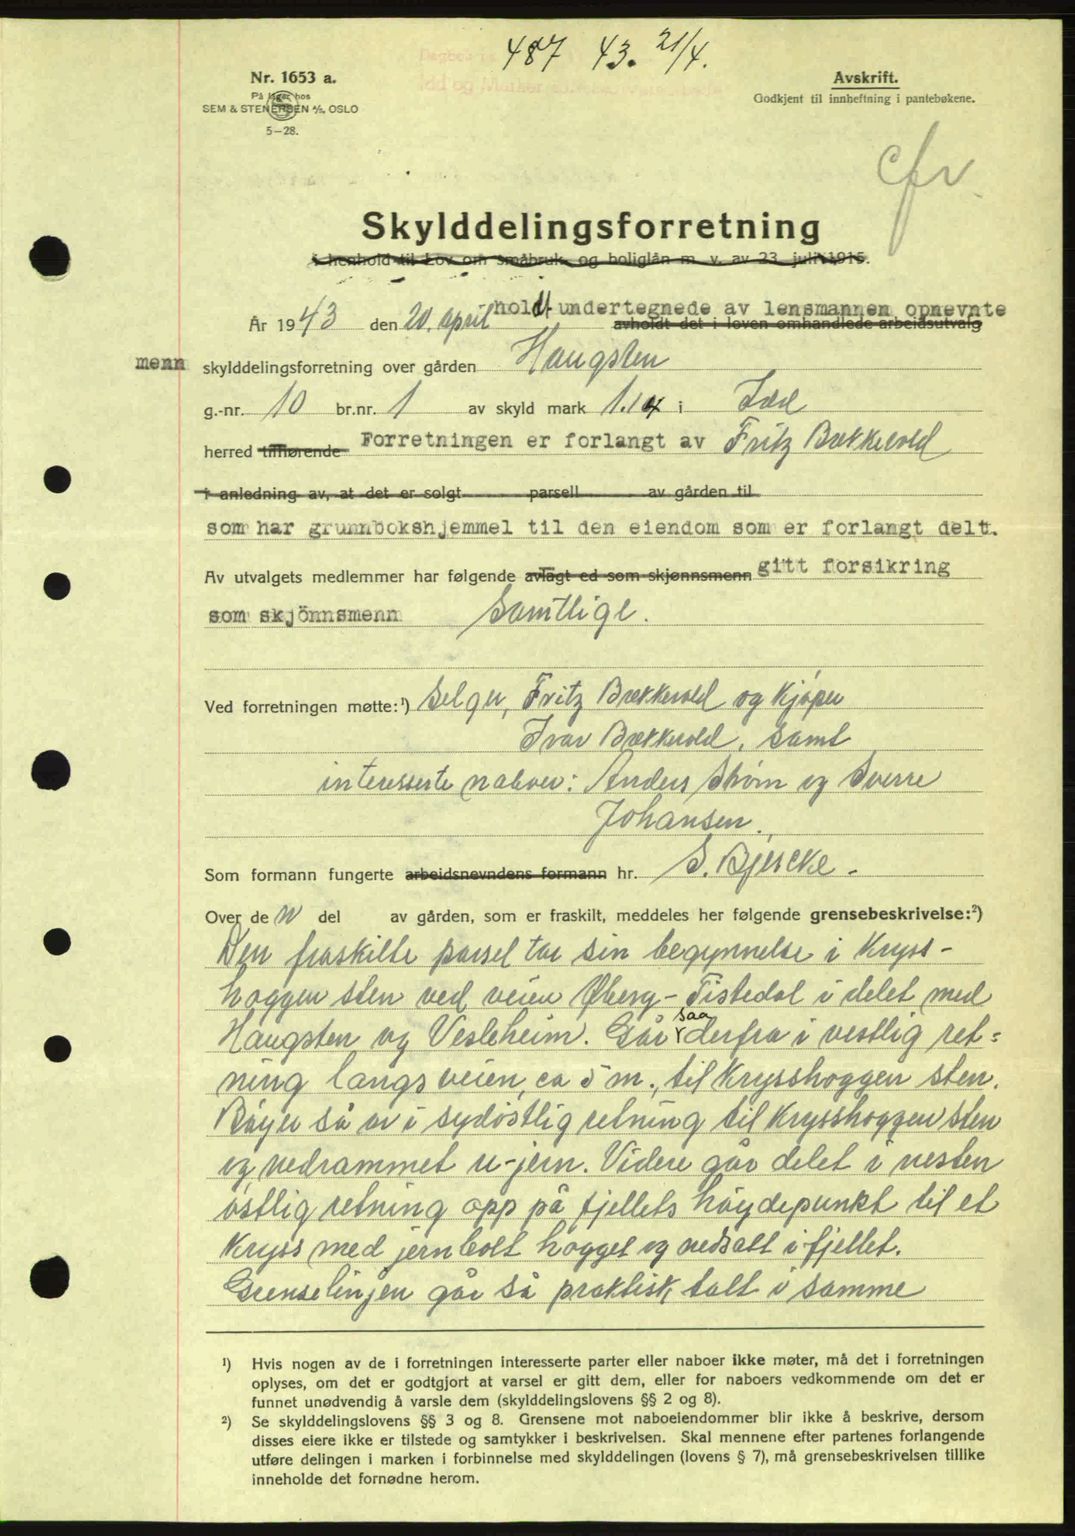 487 43. 21/4.
Nr. 1653 a.
På lager hos
SEM & STENERSEN A/S, OSLO
5-28.
Avskrift.
Godkjent til innheftning i pantebøkene.
cfr
Skylddelingsforretning
i henhold til Lov om småbruk og boliglån m. v. av 23. juli 1915.
År 1943 den 20. april holdt undertegnede av lensmannen opnevnte
avholdt det i loven omhandlede arbeidsutvalg
menn skylddelingsforretning over gården Haugsten
g.-nr. 10 br.nr. 1 av skyld mark 1.14 i Idd
herred tilhørende Forretningen er forlangt av Fritz Bækkevold
i anledning av, at det er solgt parsell av gården til
som har grunnbokshjemmel til den eiendom som er forlangt delt.
Av utvalgets medlemmer har følgende avlagt ed som skjønnsmenn gitt forsikring
som skjönnsmenn Samtlige.
Ved forretningen møtte:¹) Selger, Fritz Bækkevold og kjøper
Ivar Bækkevold, samt
interesserte naboer: Anders Strøm og Sverre
Johansen.
Som formann fungerte arbeidsnevndens formann hr. S. Bjercke.
Over de N del av gården, som er fraskilt, meddeles her følgende grensebeskrivelse:²)
Den fraskilte parsel tar sin begynnelse i kryss-
hoggen sten ved veien Øberg-Tistedal i delet med
Haugsten og Vesleheim. Går saa derfra i vestlig ret-
ning langs veien, ca 5 m., til krysshoggen sten.
Bøyer så av i sydöstlig retning til krysshoggen sten
og nedrammet u-jern. Videre går delet i nesten
östlig retning opp på fjellets høydepunkt til et
kryss med jernbolt hogget og nedsatt i fjellet.
Grenselinjen går så praktisk talt i samme
¹) Hvis nogen av de i forretningen interesserte parter eller naboer ikke møter, må det i forretningen
oplyses, om det er godtgjort at varsel er gitt dem, eller for naboers vedkommende om det er
funnet unødvendig å varsle dem (skylddelingslovens §§ 2 og 8).
²) Se skylddelingslovens §§ 3 og 8. Grensene mot naboeiendommer blir ikke å beskrive, dersom
disses eiere ikke er tilstede og samtykker i beskrivelsen. Skal mennene efter partenes forlangende
utføre delingen i marken i forbinnelse med skylddelingen (lovens § 7), må grensebeskrivelsen tillike
inneholde det fornødne herom.